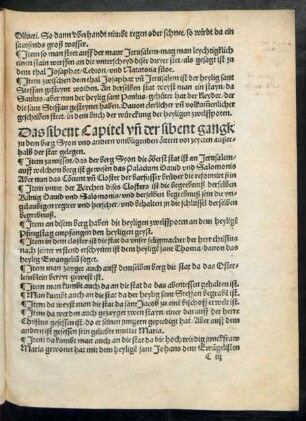 Oliueti. So dann überhandt nimbt regen oder schnee. so würdt da ein
sawsends groß wasser.
¶Item so man steet auff der maur Jerusalem. mag man leychtigklich
einen stain werffen an die vnterscheyd diser dorter stet. als gesagt ist zu
dem thal Josaphat. Cedron. vnd Natatoria siloe.
¶Item zwischen dem thal Josaphat vñ Jerusalem ist der heylig sant
Steffan gesteynt worden. An derselben stat weyst man ein stayn. da
Saulus. aber nun der heylig sant Paulus. gehütet hat der kleyder. der
die sant Steffan gesteynet haben. Dauon clerlicher vñ volkumenlicher
geschriben steet. in dem buch der würckung der heyligen zwelfpoten.
Das sibent Capitel vñ der sibent gangk
zu dem berg Syon vnd andern vmbligenden ötern vor zeyten ausser
halb der stat gelegen.
¶Item zuwissen. das der berg Syon die öberst stat ist an Jerusalem.
auff welchem berg ist gewesen das Palacium Dauid vnd Salomonis
Aber nun das Conent vñ Closter der barfusser brüder der reformirt sein
¶Item vnter der Kirchen dises Closters ist die begrebnuß der selben
Künig Dauid vnd Salomonis. vnd derselben begrebnuß sein die vn-
gläubigen regirer vnd herscher. vnd behalten in die schlüssel der selben
begrebnuß.
¶Item an disem berg haben die heyligen zwelffpoten an dem heylige
Pfingstag empfangen den heyligen geyst.
¶Item in dem closter ist die stat da vnser seligmacher der herr christus
nach seiner vrstend erschynen ist dem heylige sant Thoma. dauon das
heylig Ewangeliũ saget.
¶Item man zeyget auch auff demselben berg die stat da das Oster-
lemlein bereyt gewest ist.
¶Item da kumbt man auch an die stat da das abentessen gehalten ist.
¶Man kumbt auch an die stat da der heylig sant Steffan begrabē ist.
¶Item da weyst man die stat da sant Jacob zu eine bischoff erwelt ist.
¶Item da werden auch gezeyget zwen stayn. einer dar auff der herre
Christus gesessen ist. do er seinen jungern gepredigt hat. Aber auff dem
andern ist gesessen sein geliebte mutter Maria.
¶Item da kumbt man auch an die stat da die hochwirdig junckfraw
Maria gewonet hat mit dem heylige sant Johans dem Ewãgelisten
C iij